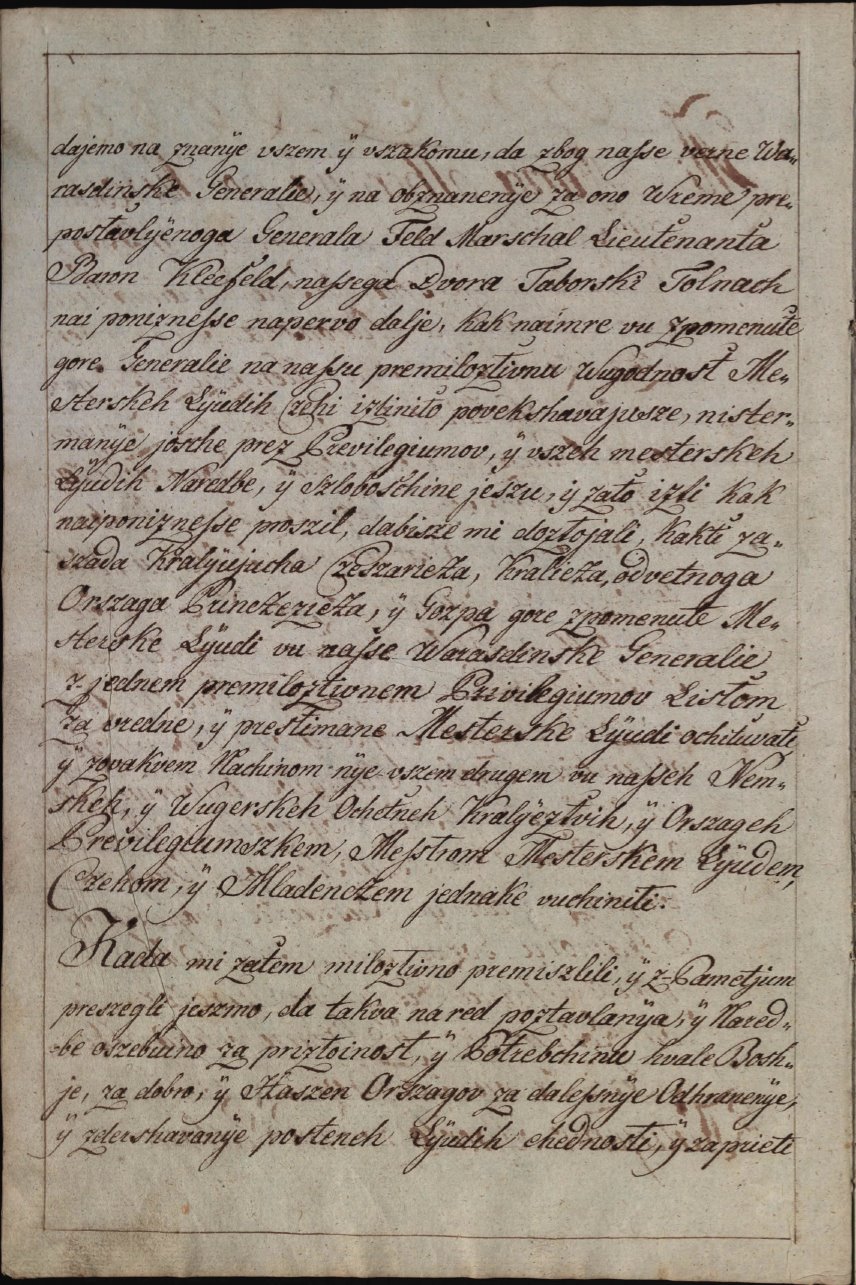 dajemo na znanÿe vszem ÿ vszakomu, da zbog nasse verne Wa-
rasdinske Generalie, ÿ na obznanenÿe za ono Wreme pre-
postavlÿenoga Generala Feld Marschal Lieutenanta
Baron Kleefeld, nassega Dvora Taborski Tolnach
nai poniznesse napervo dalje, kak naimre vu zpomenute
gore Generalie na nassu premiloztivnu Wugodnost Me-
sterskeh Lÿudih Czehi iztinito povekshavajusze, nister-
manÿe josche prez Previlegiumov, ÿ vszeh mesterskeh
Lÿudih Naredbe, ÿ Szloboschine jeszu, ÿ zato izti kak
naiponiznesse proszil, dabisze mi doztojali, kakti za-
szada Kralÿujucha Czeszaricza, Kralicza, odvetnoga
Orszaga Princzezicza, ÿ Gozpa gore zpomenute Me-
sterske Lÿudi vu nasse Warasdinske Generalie
z-jednem premiloztivnem Privilegiumov Listom
za vredne, ÿ prestimane Mesterske Lÿudi ochituvati,
ÿ zovakvem Nachinom nÿe vszem drugem vu nasseh Nem-
skeh, ÿ Wugerskeh Ochetneh Kralÿeztvih, ÿ Orszageh
Previlegiumszkem, Messtrom Mesterskem Lÿudem,
Czehom, ÿ Mladenczem jednake vuchiniti.
Kada mi zatem miloztivno premiszlili, ÿ z-Pametjum
preszegli jeszmo, da takva na red poztavlanÿa, ÿ Nared-
be oszebuino za priztoinost, ÿ Potrebchinu hvale Bosh-
je, za dobro, ÿ Haszen Orszagov za dalessnÿe Odhranenÿe,
ÿ zdershavanÿe posteneh Lÿudih chednosti, ÿ zaprieti